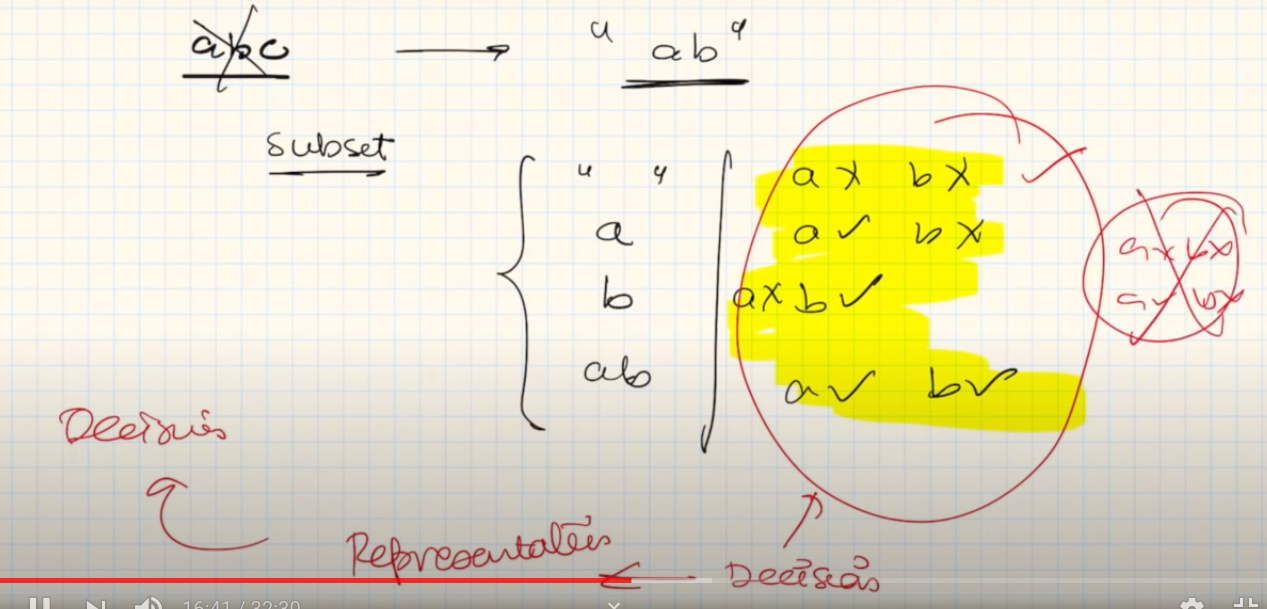 abc → " ab "
subset
" " a x b x ✓
a a ✓ b x
b a x b ✓
ab a ✓ b ✓
a x b x
a ✓ b x
Decisions
Representations ← Decisions
16:41 / 32:30